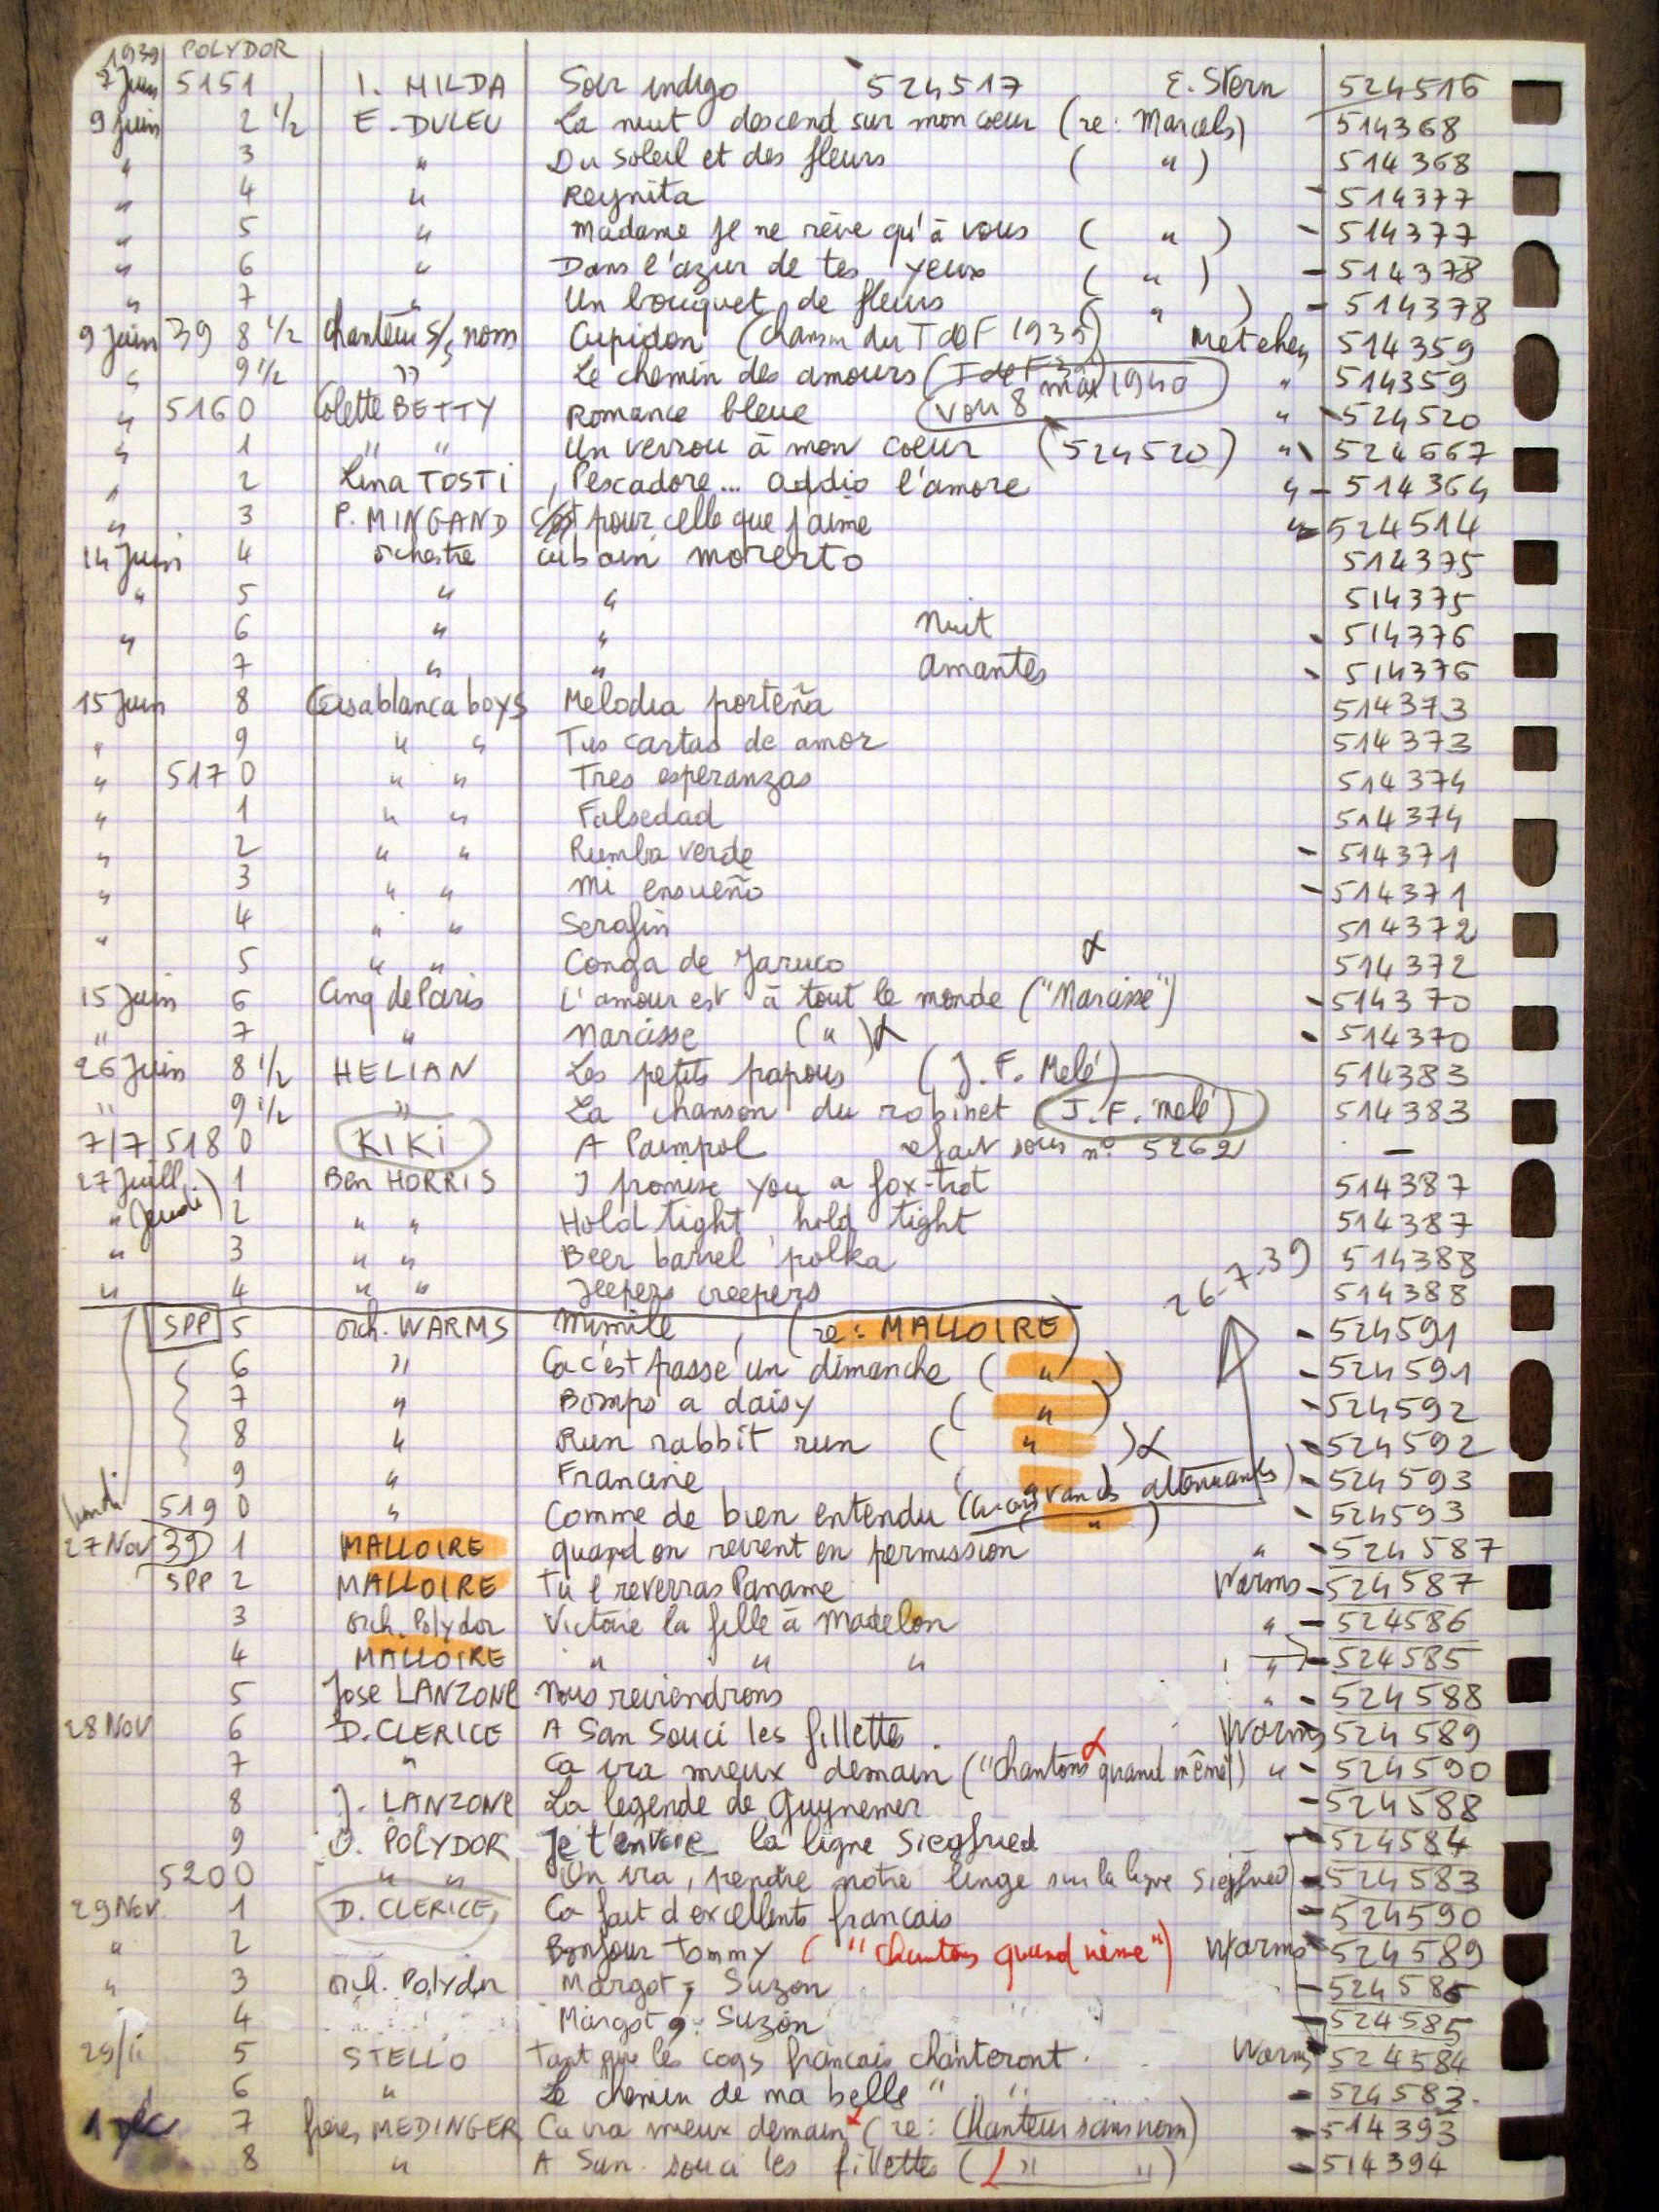 1939 POLYDOR
2 Juin 5151 I. MILDA Soir indigo 524517 E. Stern 524516
9 Juin 2 1/2 E. DULEU La nuit descend sur mon coeur (re: Marcels) 514368
" 3 " Du Soleil et des fleurs ( " ) 514368
" 4 " Reynita - 514377
" 5 " Madame je ne rêve qu'à vous ( " ) - 514377
" 6 " Dans l'azur de tes yeux ( " ) - 514378
" 7 " Un bouquet de fleurs ( " ) - 514378
9 Juin 39 8 1/2 Chanteur S/s nom Cupidon (chanson du T de F 1939) Metehen 514359
" 9 1/2 " Le chemin des amours (T de F 39) " 514359
" 5160 Colette BETTY Romance bleue (voir 8 mai 1940) " - 524520
" 1 " " Un verrou à mon coeur (524520) " - 524667
" 2 Lina TOSTI Pescadore... addio l'amore " - 514364
" 3 P. MINGAND C'est pour celle que j'aime " - 524514
14 Juin 4 orchestre cubain moterto 514375
" 5 " " 514375
" 6 " " Nuit - 514376
" 7 " " Amantes - 514376
15 Juin 8 Casablanca boys Melodia porteña 514373
" 9 " " Tus cartas de amor 514373
" 5170 " " Tres esperanzas 514374
" 1 " " Falsedad 514374
" 2 " " Rumba verde - 514371
" 3 " " Mi ensueño - 514371
" 4 " " Serafin 514372
" 5 " " Conga de Jaruco 514372
15 Juin 6 Cinq de Paris L'amour est à tout le monde ("Narcisse") - 514370
" 7 " Narcisse ( " ) - 514370
26 Juin 8 1/2 HELIAN Les petits papous (J. F. Melé) 514383
" 9 1/2 " La chanson du robinet (J. F. Melé) 514383
7/7 5180 KIKI A Paimpol refait sous n° 5262 -
27 Juill. 1 Ben HORRIS I promise you a fox-trot 514387
" (Jeudi) 2 " " Hold tight hold tight 514387
" 3 " " Beer barrel polka 514388
" 4 " " Jeepers creepers 26-7-39 514388
SPP 5 orch. WARMS Mimile (re: MALLOIRE) - 524591
6 " Ca c'est passé un dimanche ( " ) - 524591
7 " Bomps a daisy ( " ) - 524592
8 " Run rabbit run ( " ) - 524592
9 " Francine ( " ) - 524593
Lundi 5190 " Comme de bien entendu (Circonstances attenuantes) ( " ) - 524593
27 Nov 39 1 MALLOIRE quand on revient en permission " - 524587
SPP 2 MALLOIRE Tu l'reverras Paname Warms - 524587
3 orch. Polydor Victoire la fille à Madelon " - 524586
4 MALLOIRE " " " " - 524585
5 Jose LANZONE Nous reviendrons " - 524588
28 Nov 6 D. CLERICE A San Souci les fillettes Warms 524589
7 " Ca ira mieux demain ("Chantons quand même") " - 524590
8 J. LANZONE La legende de Guynemer - 524588
9 O. POLYDOR Je t'envoie la ligne Siegfried - 524584
5200 " " On ira, pendre notre linge sur la ligne Siegfried - 524583
29 Nov. 1 D. CLERICE Ca fait d'excellents francais - 524590
" 2 Bonjour Tommy ("Chantons quand même") Warms 524589
" 3 orch. Polydor Margot, Suzon - 524586
4 Margot, Suzon - 524585
29/11 5 STELLO Tant que les coqs francais chanteront. Warms 524584
6 " Le chemin de ma belle " " - 524583
1 dec 7 freres MEDINGER Ca ira mieux demain (re: Chanteur sans nom) - 514393
8 " A San souci les fillettes ( " " ) - 514394